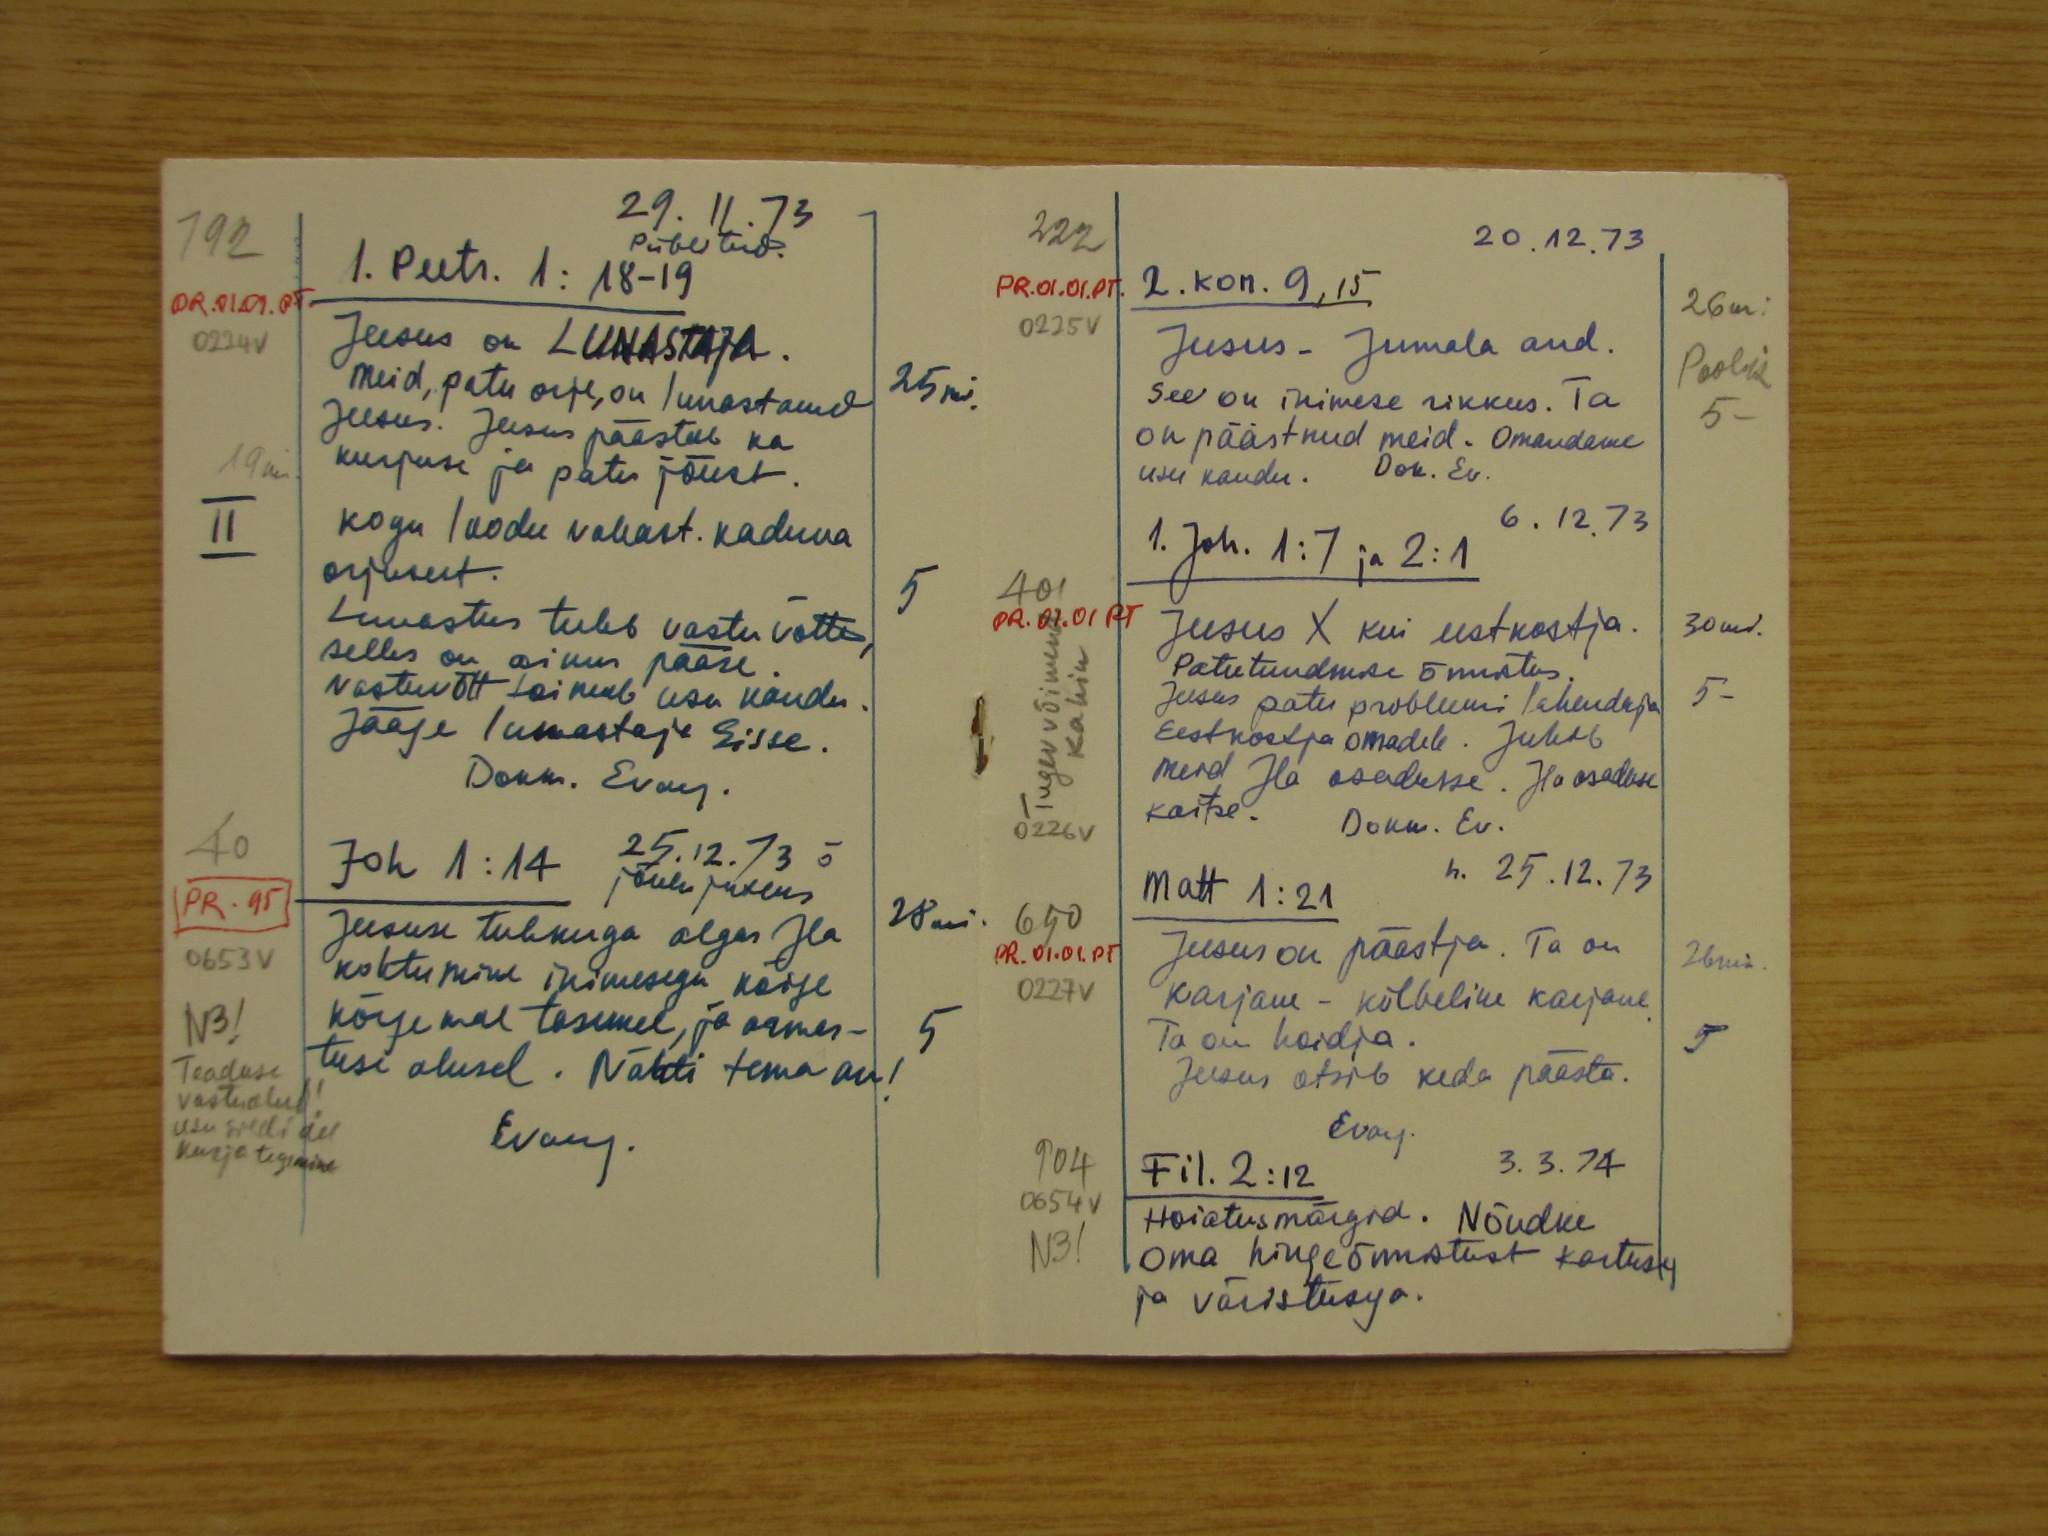 192
29. 11. 73
1. Peetr. 1: 18-19
PR.01.01.PT.
0224V
Jeesus on LUNASTAJA.
Meid, patu orje, on lunastanud
25 mi.
Jeesus. Jeesus päästab ka
kurjuse ja patu jõust.
19 mi.
II
kogu loodu vabast. kaduva
orjusest.
5
Lunastus tuleb vastu võtta,
selles on ainus pääse.
Vastuvõtt toimub usu kaudu.
Jääge lunastaja sisse.
Domm. Evang.
40
Joh 1:14
25.12.73 õ
jõulu jutlus
PR-95
0653V
Jeesuse tulekuga algas Jla
28 mi.
kohtumine inimesega kõige
kõrgemal tasemel, ja armas-
5
tuse alusel. Nähti tema au!
N3!
Teaduse
vastuolud!
usu
kurja tegemine
Evang.
222
20.12.73
PR.01.01.PT.
2. Kor. 9,15
0225V
26 mi
Jeesus - Jumala and.
Poolik
See on inimese rikkus. Ta
5-
on päästnud meid. Omandame
usu kaudu. Dom. Ev.
6.12.73
1. Joh. 1:7 ja 2:1
401
PR.01.01 PT
Jeesus X kui eestkostja.
30 mi.
Patutundmise õnnistus.
Jeesus patu probleemi lahendaja
5-
Eestkostja omadele. Juhib
meid Jla osadusse. Jla osaduse
kaitse. Domm. Ev.
0226V
h. 25.12.73
Matt 1:21
650
PR.01.01.PT
0227V
Jeesus on päästja. Ta on
26 min.
Karjane - kõlbeline karjane.
Ta on hoidja.
5
Jeesus otsib keda päästa.
Evang.
904
Fil. 2:12
3.3.74
0654V
Hoiatusmärgid. Nõudke
N3!
Oma hingeõnnistust kartuseg
ja väristusega.